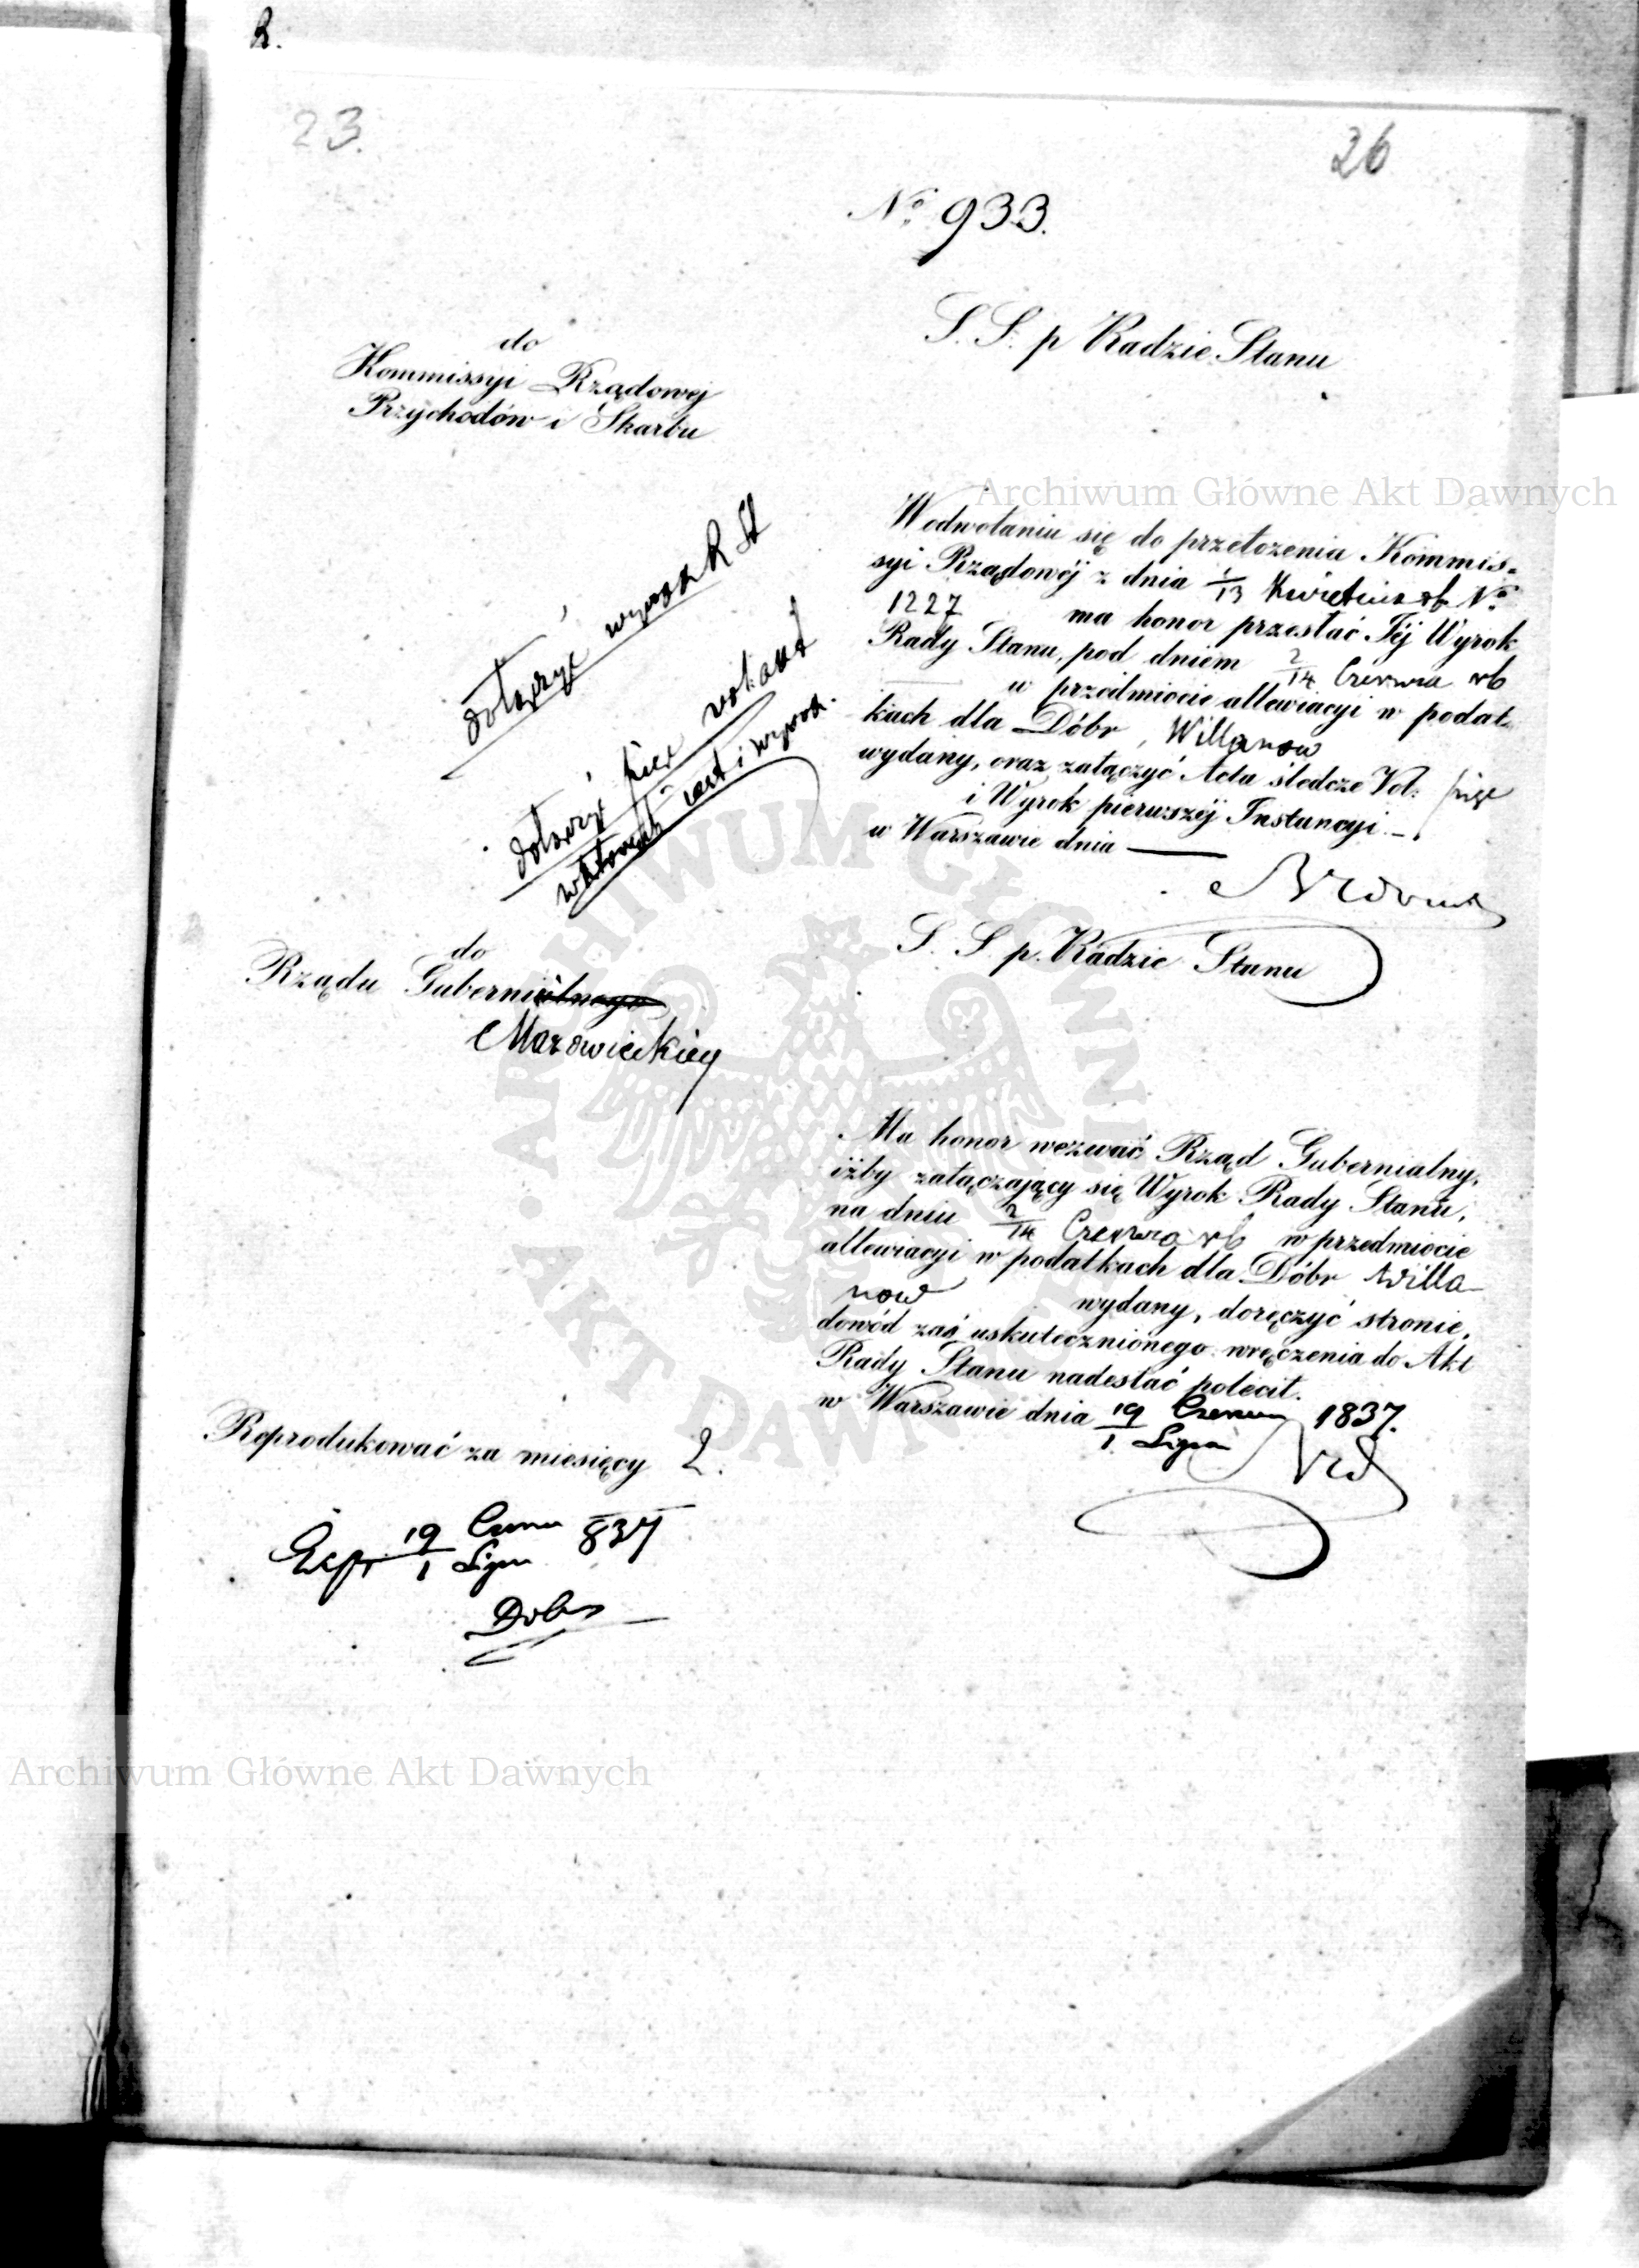 R.
23.
26
No 933.
do
Kommissyi Rządowej
Przychodów i Skarbu
S. S. p Radzie Stanu
W odwołaniu się do przełożenia Kommis=
syi Rządowéj z dnia 1/13 Kwietnia rb No
1227 ma honor przesłać Téj Wyrok
Rady Stanu, pod dniem 2/14 Czerwca rb
w przedmiocie allewiacyi w podat=
kach dla Dóbr Willanow
wydany, oraz załączyć Acta śledcze Vol: pięć
i Wyrok pierwszéj Instancyi. —
w Warszawie dnia —
dołączyć wyrok R St
dołączyć pięć
i wyrok.
do
Rządu Gubernialnego
Mazowieckiey
S. S. p. Radzie Stanu
Ma honor wezwać Rząd Gubernialny,
iżby załączający się Wyrok Rady Stanu,
na dniu 2/14 Czerwca rb w przedmiocie
allewiacyi w podatkach dla Dóbr Willa
now wydany, doręczyć stronie,
dowód zaś uskutecznionego wręczenia do Akt
Rady Stanu nadesłać polecił.
w Warszawie dnia 19 Czerwca / 1 Lipca 1837.
Reprodukować za miesięcy 2.
Exp 19 Czerw / 1 Lipca 837
Archiwum Główne Akt Dawnych
ARCHIWUM GŁÓWNE AKT DAWNYCH
Archiwum Główne Akt Dawnych